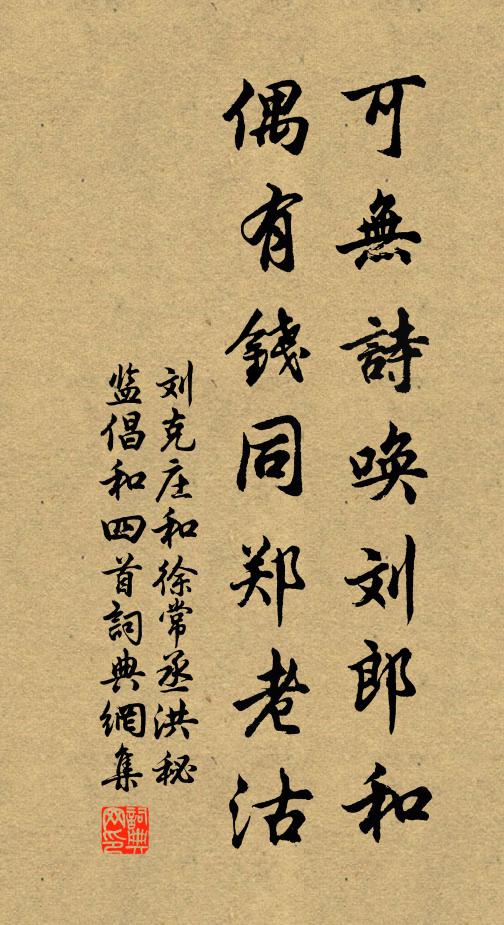 可無詩唤刘郎和
偶有錢同郑老沽
刘克庄和徐常丞洪秘
监倡和四首詞典網集
詞典网印